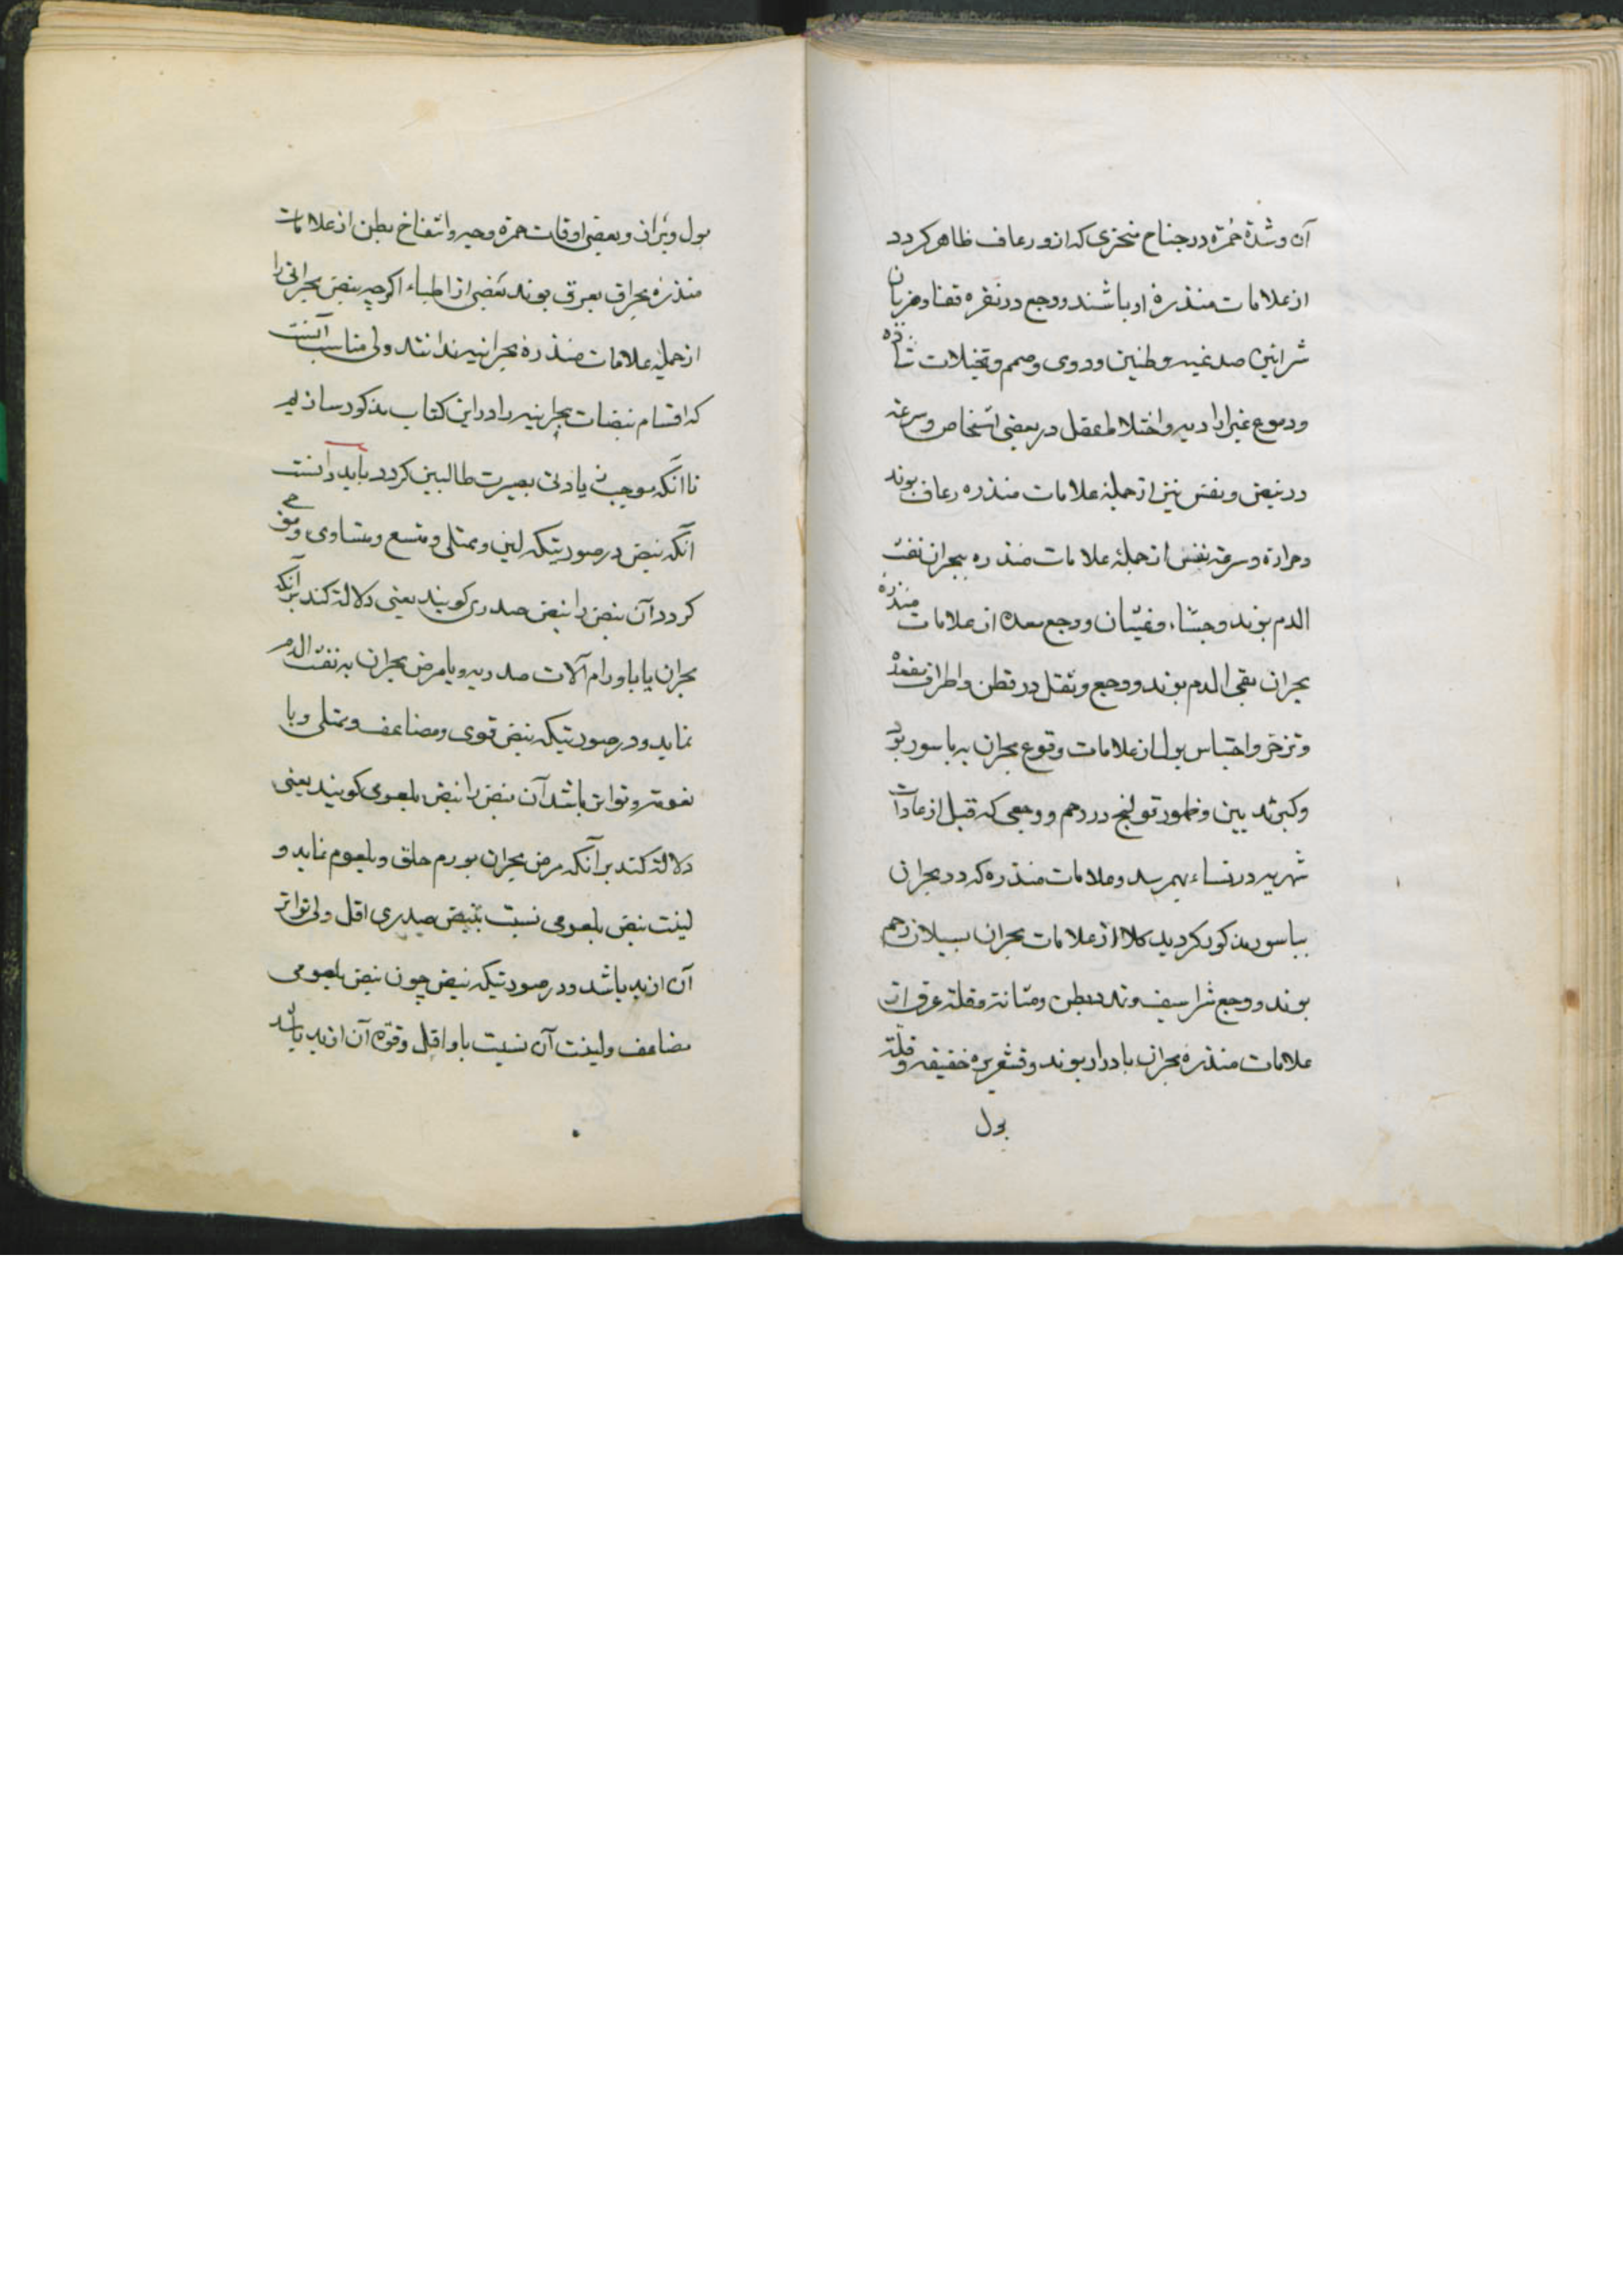 آن و شدّة حُمرَة در جناح منخزی که ازو رعاف ظاهر کردد
از علامات منذرهٔ او باشند و وجع در نقره قفا و ضربان
شرائین صدغیه و طنین و دوی و صمم و تخیلات شاذه
و دموع غیر ارادیه و اختلاط عقل در بعضی اشخاص و سرعة
در نبض و نفس نیز از جملهٔ علامات منذره رعاف بوند
و حرارة و سرعة نفس از جملهٔ علامات منذره ببحران نفث
الدم بوند و جشاء و غثیان و وجع معده از علامات منذرهٔ
بحران بقی الدم بوند و وجع و ثقل در قطن و اطراف مقعده
و تزحّر و احتباس بول از علامات وقوع بحران به باسور بود
و کبر ثدیین و ظهور قولنج در رحم و وجعی که قبل از عادات
شهریه در نساء بهم رسد و علامات منذره که در بحران
بباسور مذکور کردید کلا از علامات بحران بسیلان رحم
بوند و وجع شراسیف و تمدد بطن و مثانة و قلة عرق از
علامات منذره بحران بادرار بوند و قشعریره خفیفه و قلّة
بول
بول و براز و بعضی اوقات حمرة وجه و انتفاخ بطن از علامات
منذره بحران بعرق بوند بعضی از اطباء اکرچه نبض بحرانی را
از جمله علامات منذرهٔ بحرانیه ندانند ولی مناسب آنست
که اقسام نبضات بحرانیه را در این کتاب مذکور سازیم
تا آنکه موجب زیادتی بصیرت طالبین کردد باید دانست
آنکه نبض در صورتیکه لین و ممتلی و متسع و متساوی و موجی
کردد آن نبض را نبض صدری کویند یعنی دلالة کند بر آنکه
بحران یا باورام آلات صدریه و یا مرض بحران به نفث الدم
نماید و در صورتیکه نبض قوی و مضاعف و ممتلی و با
نعومة و تواتر باشد آن نبض را نبض بلعومی کویند یعنی
دلالة کند بر آنکه مرض بحران بورم حلق و بلعوم نماید و
لینت نبض بلعومی نسبت بنبض صدری اقل ولی تواتر
آن ازید باشد و در صورتیکه نبض چون نبض بلعومی
مضاعف و لینت آن نسبت باو اقل و قوّه آن ازید باشد